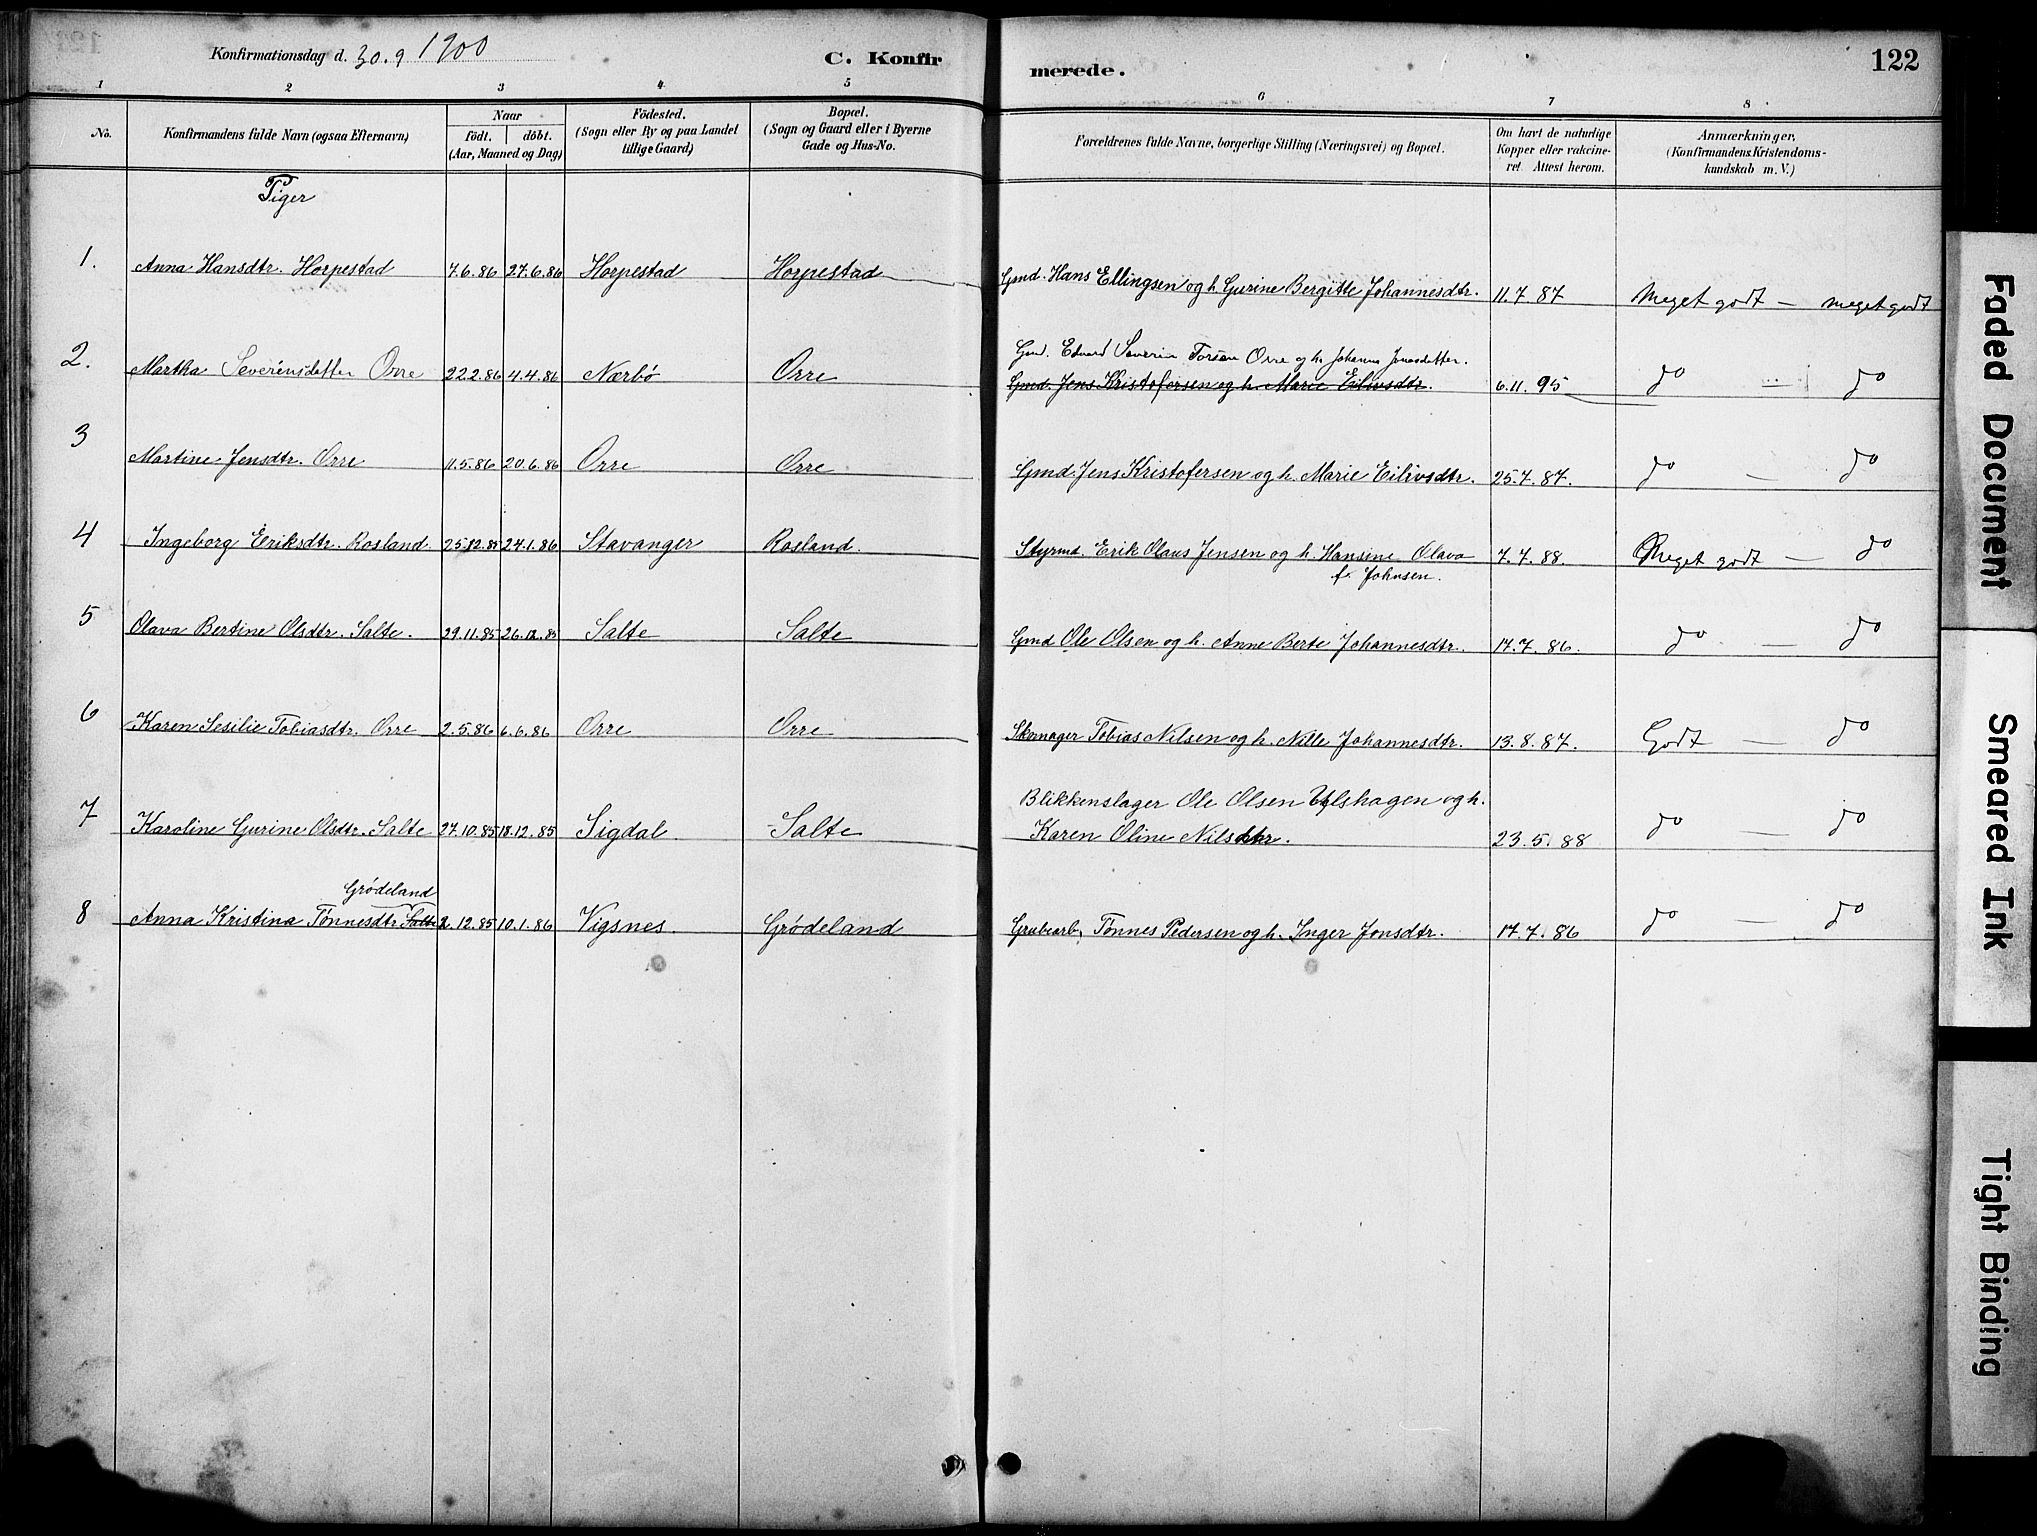 Konfirmationsdag d. 30.9 1900
C. Konfir
merede.
122
1 2 3 4 5 6 7 8
No.
Konfirmandens fulde Navn (ogsaa Efternavn)
Naar
födt. döbt.
(Aar, Maaned og Dag)
Födested.
(Sogn eller By og paa Landet
tillige Gaard)
Bopæl.
(Sogn og Gaard eller i Byerne
Gade og Hus-No.
Forældrenes fulde Navne, borgerlige Stilling (Næringsvei) og Bopæl.
Om havt de naturlige
Kopper eller vakcine-
ret. Attest herom.
Anmærkninger,
(Konfirmandens Kristendoms-
kundskab m. V.)
Piger
1. Anna Hansdtr. Horpestad 7.6.86 27.6.86 Horpestad Horpestad Gmd. Hans Ellingsen og h. Gurine Bergitte Johannesdtr. 11.7 87 Meget godt — meget godt
Gmd. Edvard Severin Torsen Orre og h. Johanna Jonasdatter.
2. Martha Severinsdatter Orre 22.2.86 4.4.86 Nærbö Orre Gmd. Jens Kristofersen og h. Marie Eilivsdtr. 6.11.95 do — do
3 Martine Jensdtr. Orre 11.5.86 20.6.86 Orre Orre Gmd. Jens Kristofersen og h. Marie Eilivsdtr. 25.7.87. do — do
4 Ingeborg Eriksdtr. Rosland. 25.12.85 24.1.86 Stavanger Rosland. Styrmd. Erik Olaus Jensen og h. Hansine Olava 7.7.88. Meget godt — do
f. Johnsen.
5 Olava Bertine Olsdtr. Salte. 29.11.85 26.12.85 Salte Salte Gmd Ole Olsen og h. Anne Berte Johannesdtr. 17.7.86. do — do
6 Karen Sesilie Tobiasdtr. Orre 2.5.86 6.6.86 Orre Orre Skomager Tobias Nilsen og h. Nille Johannesdtr. 13.8.87. Godt — do
Blikkenslager Ole Olsen Ulshagen og h.
7 Karoline Gurine Olsdtr. Salte 27.10.85 18.12.85 Sigdal. Salte Karen Oline Nilsdtr. 23.5.88 do — do
Grödeland
8 Anna Kristina Tønnesdtr. Salte 2.12.85 10.1.86 Vigsnes. Grødeland Grubearb. Tønnes Pedersen og h. Inger Jonsdtr. 17.7.86 do — do
Faded Document
Smeared Ink
Tight Binding